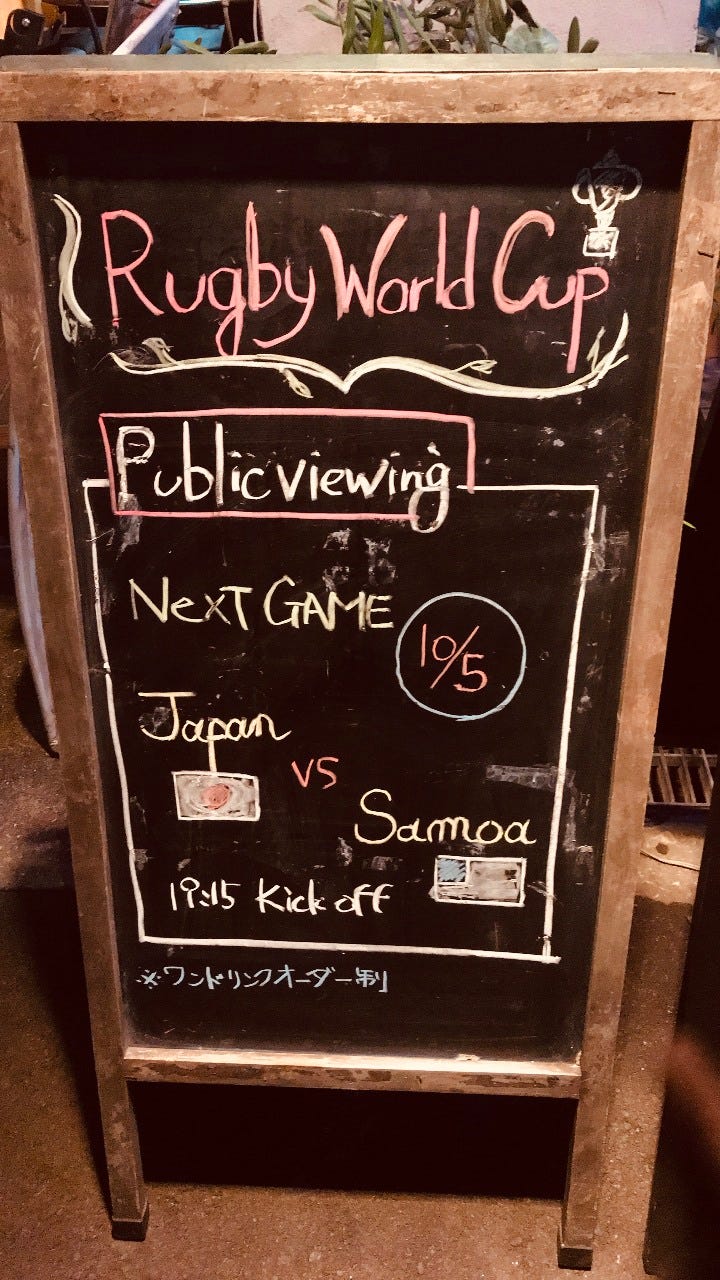 Rugby World Cup
Public viewing
NexT GAME
10/5
Japan
vs
Samoa
19:15 Kick off
※ワンドリンクオーダー制